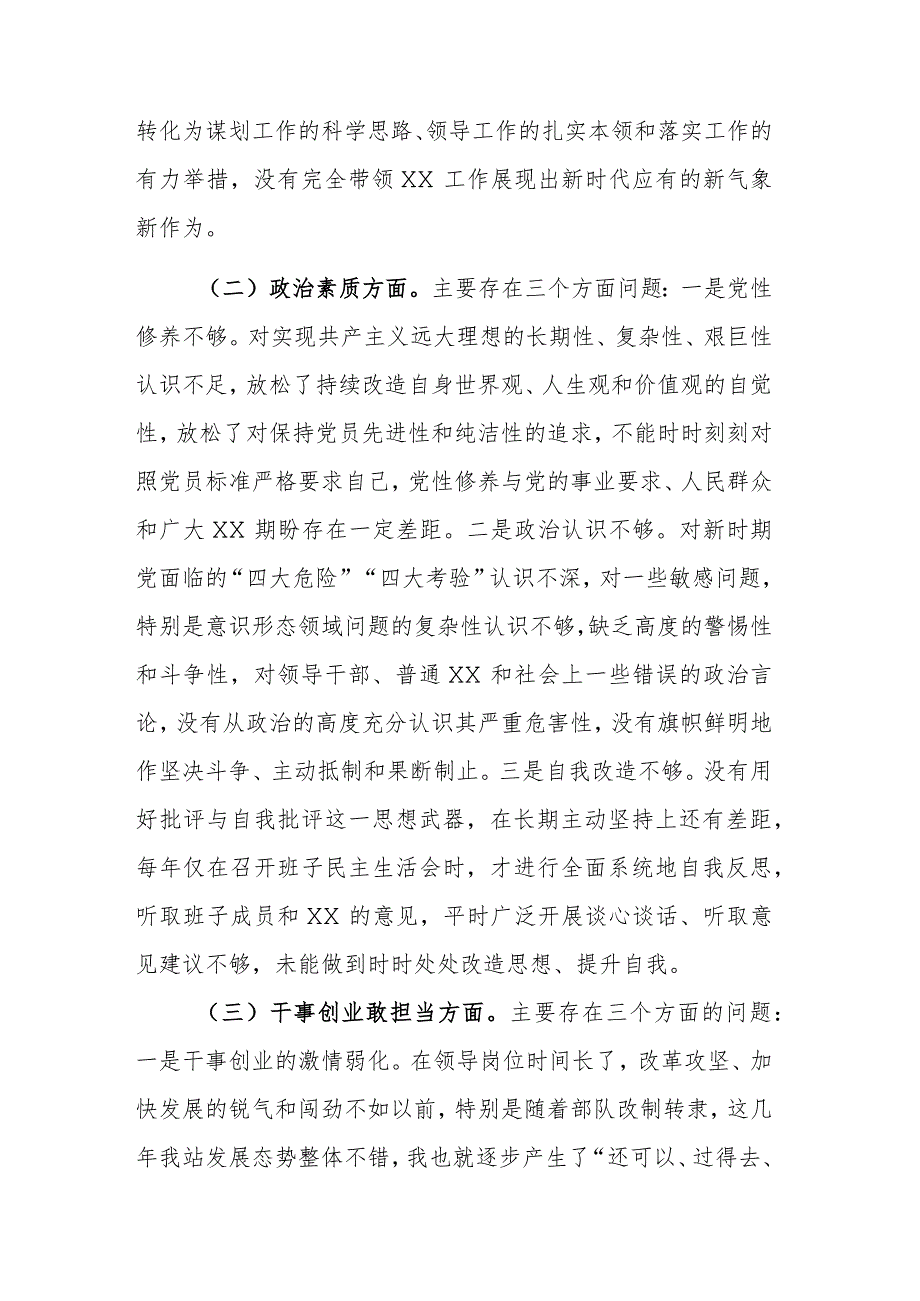 转化为谋划工作的科学思路、领导工作的扎实本领和落实工作的
有力举措，没有完全带领 XX 工作展现出新时代应有的新气象
新作为。
（二）政治素质方面。主要存在三个方面问题：一是党性
修养不够。对实现共产主义远大理想的长期性、复杂性、艰巨性
认识不足，放松了持续改造自身世界观、人生观和价值观的自觉
性，放松了对保持党员先进性和纯洁性的追求，不能时时刻刻对
照党员标准严格要求自己，党性修养与党的事业要求、人民群众
和广大 XX 期盼存在一定差距。二是政治认识不够。对新时期
党面临的“四大危险”“四大考验”认识不深，对一些敏感问题，
特别是意识形态领域问题的复杂性认识不够，缺乏高度的警惕性
和斗争性，对领导干部、普通 XX 和社会上一些错误的政治言
论，没有从政治的高度充分认识其严重危害性，没有旗帜鲜明地
作坚决斗争、主动抵制和果断制止。三是自我改造不够。没有用
好批评与自我批评这一思想武器，在长期主动坚持上还有差距，
每年仅在召开班子民主生活会时，才进行全面系统地自我反思，
听取班子成员和 XX 的意见，平时广泛开展谈心谈话、听取意
见建议不够，未能做到时时处处改造思想、提升自我。
（三）干事创业敢担当方面。主要存在三个方面的问题：
一是干事创业的激情弱化。在领导岗位时间长了，改革攻坚、加
快发展的锐气和闯劲不如以前，特别是随着部队改制转隶，这几
年我站发展态势整体不错，我也就逐步产生了“还可以、过得去、